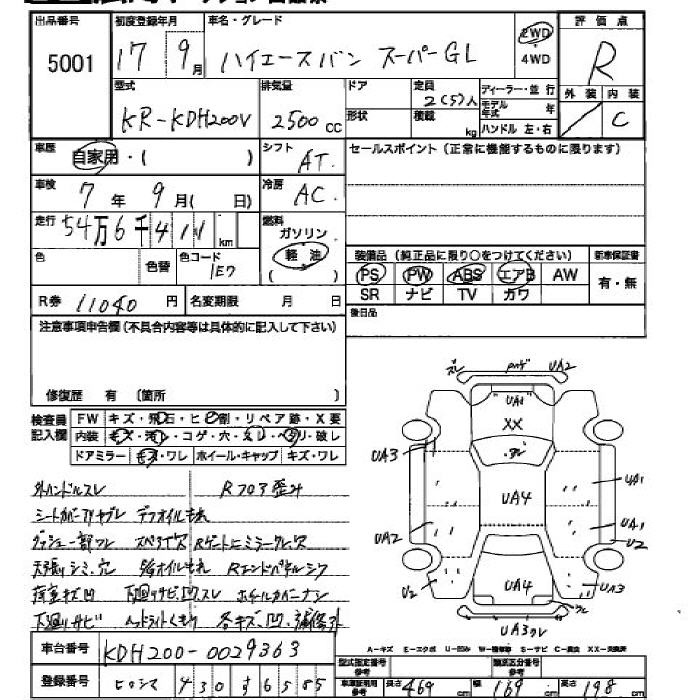 出品番号 初度登録年月 車名・グレード 評価点
5001 17 9月 ハイエースバン スーパーGL 2WD・4WD R
型式 排気量 ドア 定員 ディーラー・並行 外装 内装
KR-KDH200V 2500cc 形状 2(5)人 積載 kg モデル年式 年 ハンドル 左・右 C
車歴 自家用・( ) シフト AT セールスポイント(正常に機能するものに限ります)
車検 7年 9月( 日) 冷房 AC
走行 54万6千411km 燃料 ガソリン 軽油 ( )
色 色替 色コード 1E7 装備品(純正品に限り○をつけてください) 新車保証書
PS PW ABS エアB AW 有・無
R券 11040円 名変期限 月 日 SR ナビ TV カワ
注意事項申告欄(不具合内容等は具体的に記入して下さい) 後日品
修復歴 有 〔箇所 〕
検査員記入欄 FW キズ・飛石・ヒビ割・リペア跡・X要
内装 キズ・汚レ・コゲ・穴・スレ・ベタリ・破レ
ドアミラー キズ・ワレ ホイール・キャップ キズ・ワレ
外ハンドルスレ Rフロア歪み
シートカバー下ヤブレ デフオイルもれ
天張りシミ、穴 Rエンドパネル
下廻りサビ ヘッドライトくもり 各キズ、凹、補修跡
ズレ UA2
UA1
XX
UA3 UA4 UA1
UA2 UA1
U2
U2 UA4 UA3
UA3 ワレ
A-キズ E-エクボ U-凹み W-補修等 S-サビ C-腐食 XX-交換済
車台番号 KDH200-0029363
登録番号 ヒロシマ 430 す 6585
型式指定番号 参考 類別区分番号 参考
車庫証明用 参考 長さ 469cm 幅 169cm 高さ 198cm